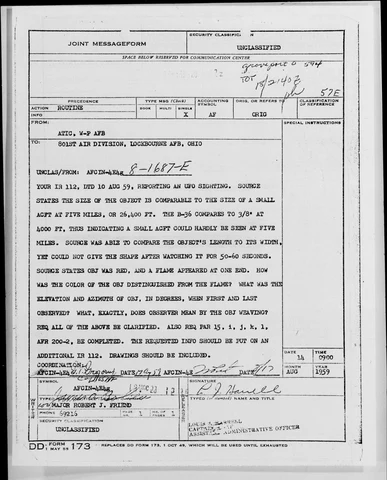 SECURITY CLASSIFIC
JOINT MESSAGEFORM
UNCLASSIFIED
SPACE BELOW RESERVED FOR COMMUNICATION CENTER
57E
PRECEDENCE
TYPE MSG (Check)
ACCOUNTING SYMBOL
ORIG. OR REFERS TO
CLASSIFICATION OF REFERENCE
ACTION ROUTINE
BOOK MULTI SINGLE
INFO
X AF ORIG
FROM:
SPECIAL INSTRUCTIONS
ATIC, W-P AFB
TO:
801ST AIR DIVISION, LOCKBOURNE AFB, OHIO
UNCLAS/FROM: AFCIN-4E4g 8-1687-E
YOUR IR 112, DTD 10 AUG 59, REPORTING AN UFO SIGHTING. SOURCE
STATES THE SIZE OF THE OBJECT IS COMPARABLE TO THE SIZE OF A SMALL
ACFT AT FIVE MILES, OR 26,400 FT. THE B-36 COMPARES TO 3/8" AT
4000 FT, THUS INDICATING A SMALL ACFT COULD HARDLY BE SEEN AT FIVE
MILES. SOURCE WAS ABLE TO COMPARE THE OBJECT'S LENGTH TO ITS WIDTH,
YET COULD NOT GIVE THE SHAPE AFTER WATCHING IT FOR 50-60 SECONDS.
SOURCE STATES OBJ WAS RED, AND A FLAME APPEARED AT ONE END. HOW
WAS THE COLOR OF THE OBJ DISTINGUISHED FROM THE FLAME? WHAT WAS THE
ELEVATION AND AZIMUTH OF OBJ, IN DEGREES, WHEN FIRST AND LAST
OBSERVED? WHAT, EXACTLY, DOES OBSERVER MEAN BY THE OBJ WEAVING?
REQ ALL OF THE ABOVE BE CLARIFIED. ALSO REQ PAR 15, i, j, k, l,
AFR 200-2, BE COMPLETED. THE REQUESTED INFO SHOULD BE PUT ON AN
ADDITIONAL IR 112. DRAWINGS SHOULD BE INCLUDED.
COORDINATION:
DATE TIME
14 0900
AFCIN-4E4 DATE AFCIN-4E DATE
MONTH YEAR
AUG 1959
SYMBOL
AFCIN-4E4g
SIGNATURE
TYPED NAME AND TITLE
MAJOR ROBERT J. FRIEND
PHONE 69216
TYPED NAME AND TITLE
ADMINISTRATIVE OFFICER
SECURITY CLASSIFICATION
UNCLASSIFIED
DD FORM 1 MAY 55 173 REPLACES DD FORM 173, 1 OCT 49, WHICH WILL BE USED UNTIL EXHAUSTED